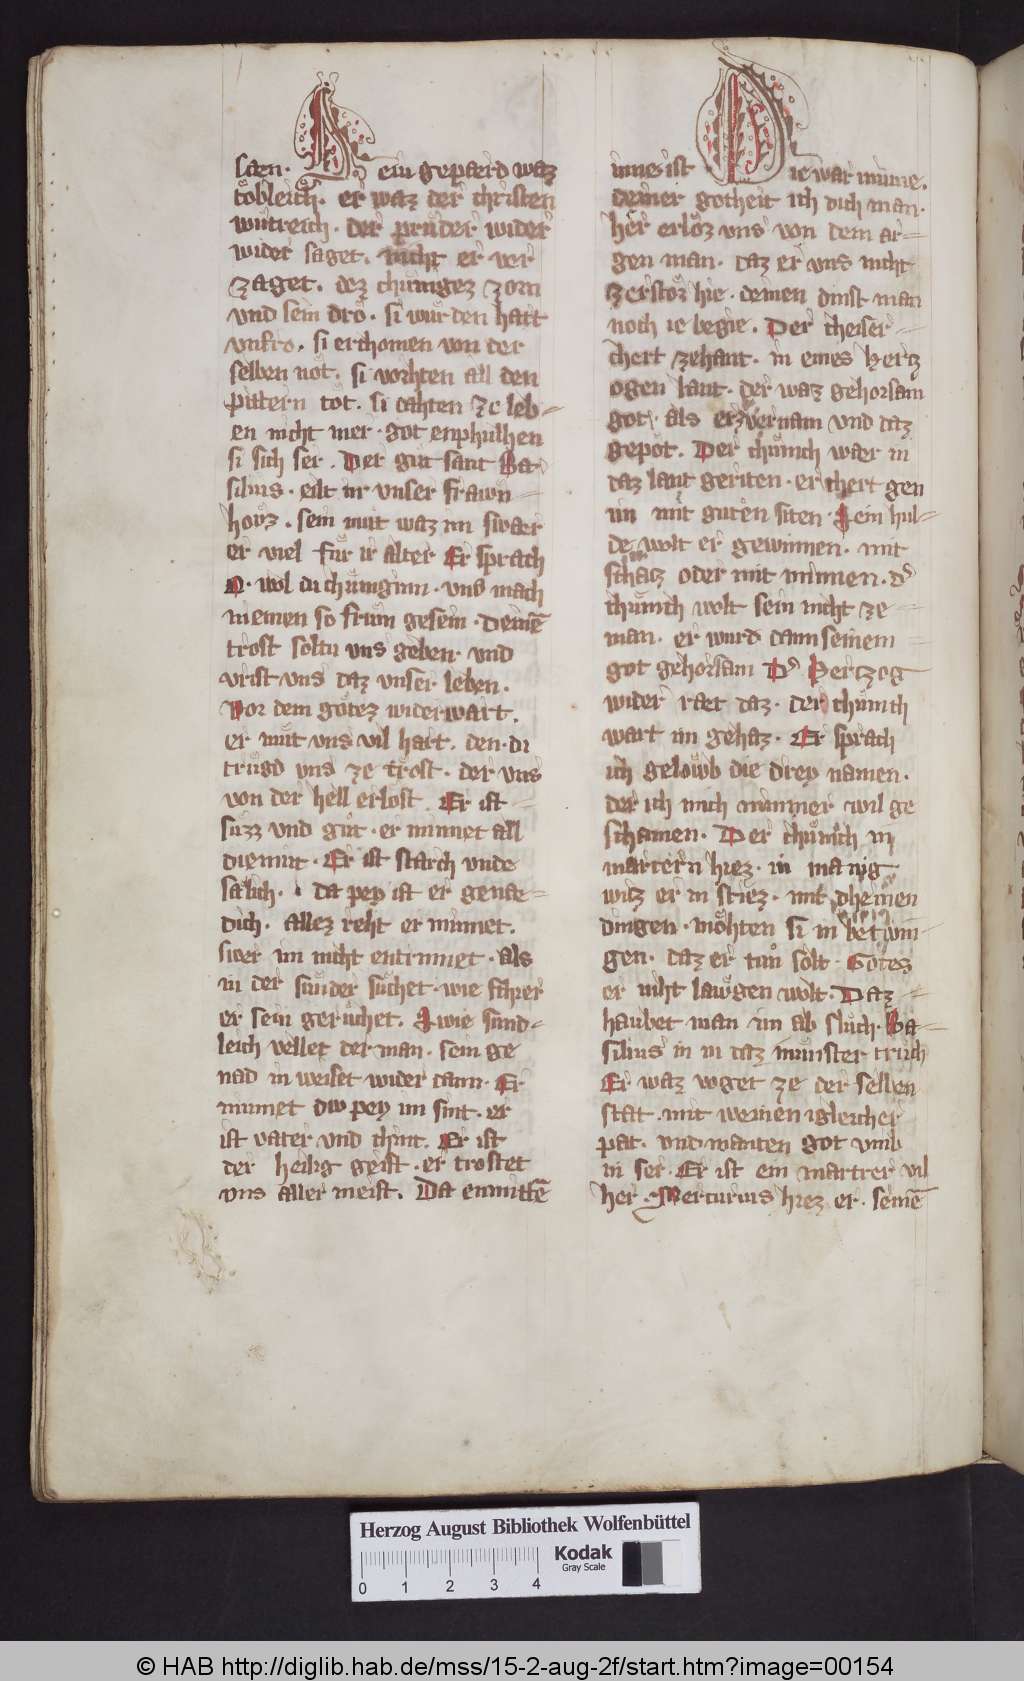 laen. Sein gepaerd waz
tobleich. er waz der christen
wutreich. der pruder wider
wider saget. nicht er ver
zaget. dez chunigez zorn
vnd sein dro. si wurden hart
vnfro. si erchomen von der
selben not. si vorhten all den
pittern tot. si dahten ze leb
en nicht mer. got enphulhen
si sich ser. Der gut sant Ba
silius. eilt in vnser frawn
hovz. sein mut waz im swaer
er viel fur ir alter Er sprach
O. wol du chuniginn. vns mach
meinen so frum gesein. Deinē
trost soltu vns geben. vnd
vrist vns daz vnser leben.
Vor dem gotez widerwart.
er mut vns vil hart. den. du
trugd vns ze trost. der vns
von der hell erlost Er ist
suzz vnd gut. er minnet all
diemut. Er ist starch vnde
salich. da pey ist er gene
dich. allez reht er minnet.
swer im nicht entrinnet. als
in der sunder suchet. wie schier
er sein geruchet. Swie sund
leich vellet der man. sein ge
nad in weiset wider dann. Er
minnet diw pey im sint. er
ist vater vnd chint. Er ist
der heilig geist. er trostet
vns aller meist. Da enmittē
innes ist Die war minne.
deiner gotheit ich dich man.
her erloz vns von dem ar
gen man. daz er vns nicht
zerstoz hie. deinen dinst man
noch ie begie. Der cheiser
chert zehant. in eines hertz
ogen lant. der waz gehorsam
got. als erz vernam vnd daz
gepot. Der chunich waer in
daz lant geriten. er chert gen
im mit guten siten. Sein hul
de wolt er gewinnen. mit
schatz oder mit minnen. d'
chunich wolt sein nicht ze
man. er wurd dann seinem
got gehorsam D' Hertzog
wider raet daz. der chunich
wart im gehaz. Er sprach
ich gelowb die drey namen.
der ich mich nimmer wil ge
schamen. Der chunich in
martern hiez. in manig
witz er in stiez. mit dheinen
dingen. mohten si in betwin
gen. daz er tun solt. Gotes
er niht lawgen wolt. Daz
haubet man im ab sluch. Ba
silius in in daz munster truch
Er waz voget ze der selben
stat. mit weinen igleicher
pat. vnd manten got vmb
in ser. Er ist ein martrer vil
her. Mercurius hiez er. seinē
Herzog August Bibliothek Wolfenbüttel
Kodak
Gray Scale
0 1 2 3 4
© HAB http://diglib.hab.de/mss/15-2-aug-2f/start.htm?image=00154